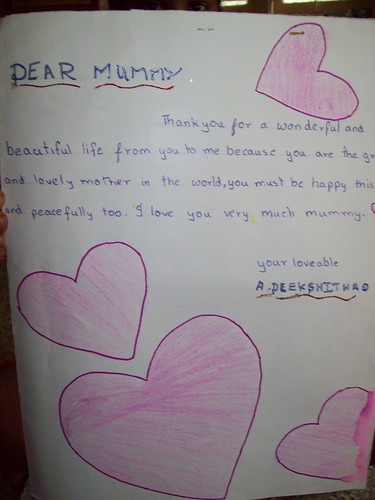 DEAR MUMMY
Thankyou for a wonderful and
beautiful life from you to me because you are the gr
and lovely mother in the world, you must be happy this
and peacefully too. I love you very much mummy.
your loveable
A.DEEKSHITHAO